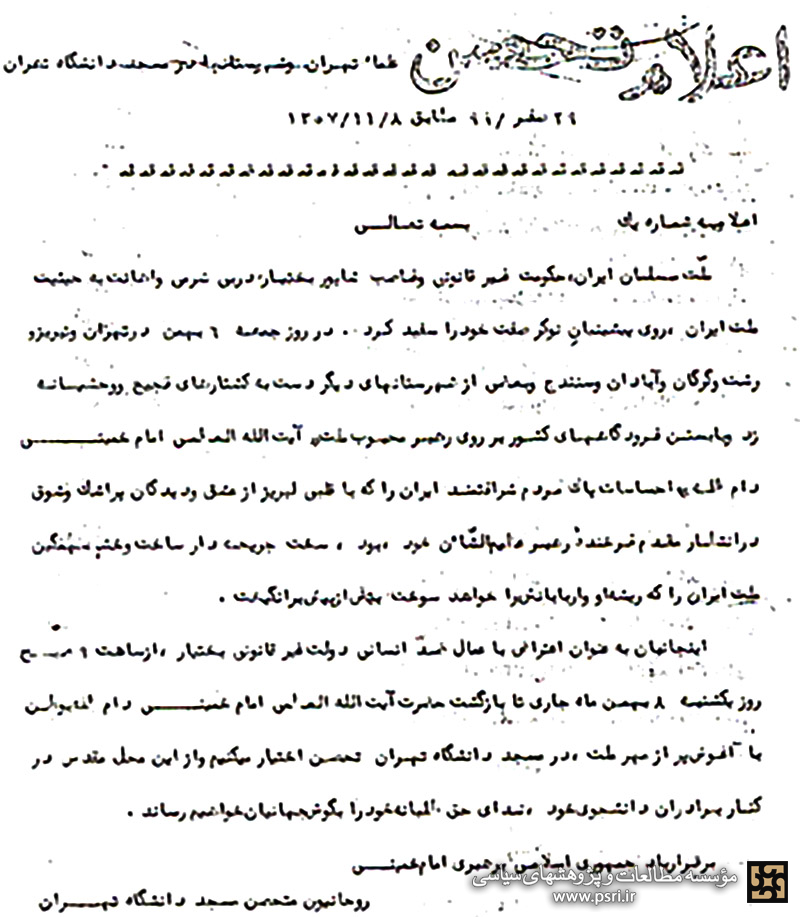 اعلامیه متحصنین علماء تهران و شهرستانها در مسجد دانشگاه تهران
۲۹ صفر /۹۹ مطابق ۱۳۵۷/۱۱/۸
اعلامیه شماره یک بسمه تعالی
ملّت مسلمان ایران، حکومت غیر قانونی و غاصب شاپور بختیار، در بی شرمی و اهانت به حیثیت
ملت ایران ، روی پیشینیان نوکر صفت خود را سفید کرد . . در روز جمعه ۶ بهمن در تهران و تبریز و
رشت و گرگان و آبادان و سنندج و بعضی از شهرستانهای دیگر دست به کشتارهای فجیع و وحشیانه
زد و با بستن فرودگاههای کشور بر روی رهبر محبوب ملت، آیت الله العظمی امام خمینی
دام ظله به احساسات پاک مردم شرافتمند ایران را که با قلبی لبریز از عشق و دیدگان پر اشک و شوق
در انتظار مقدم فرخنده رهبر عظیم الشّأن خود ، بود ، سخت جریحه دار ساخت و خشم سهمگین
ملت ایران را که ریشه او و اربابانش را خواهد سوخت بیش از پیش برانگیخت .
اینجانبان به عنوان اعتراض با عمال ضدّ انسانی دولت غیر قانونی بختیار ، از ساعت ۹ صبح
روز یکشنبه ۸ بهمن ماه جاری تا بازگشت حضرت آیت الله العظمی امام خمینی دام ظله
با آغوش پر از مهر ملت ، در مسجد دانشگاه تهران تحصن اختیار میکنیم و از این محل مقدس در
کنار برادران دانشجوی خود ، ندای حق طلبانه خود را بگوش جهانیان خواهیم رساند .
برقرار باد جمهوری اسلامی برهبری امام خمینی
روحانیون متحصن مسجد دانشگاه تهران
مؤسسه مطالعات و پژوهشهای سیاسی
www.psri.ir